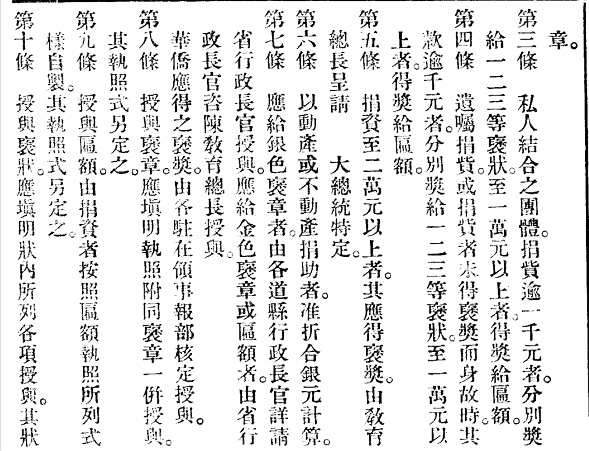 章。
第三條　私人結合之團體。捐貲逾一千元者。分別獎
給一二三等褒狀。至一萬元以上者。得獎給匾額。
第四條　遺囑捐貲。或捐貲者未得褒獎而身故時。其
款逾千元者。分別獎給一二三等褒狀。至一萬元以
上者。得獎給匾額。
第五條　捐貲至二萬元以上者。其應得褒獎。由敎育
總長呈請　大總統特定。
第六條　以動產或不動產捐助者。准折合銀元計算。
第七條　應給銀色褒章者。由各道縣行政長官詳請
省行政長官授與。應給金色褒章或匾額者。由省行
政長官咨陳敎育總長授與。
華僑應得之褒獎。由各駐在領事報部核定授與。
第八條　授與褒章。應塡明執照附同褒章一倂授與。
其執照式另定之。
第九條　授與匾額。由捐貲者按照匾額執照所列式
樣自製。其執照式另定之。
第十條　授與褒狀。應塡明狀內所列各項授與。其狀